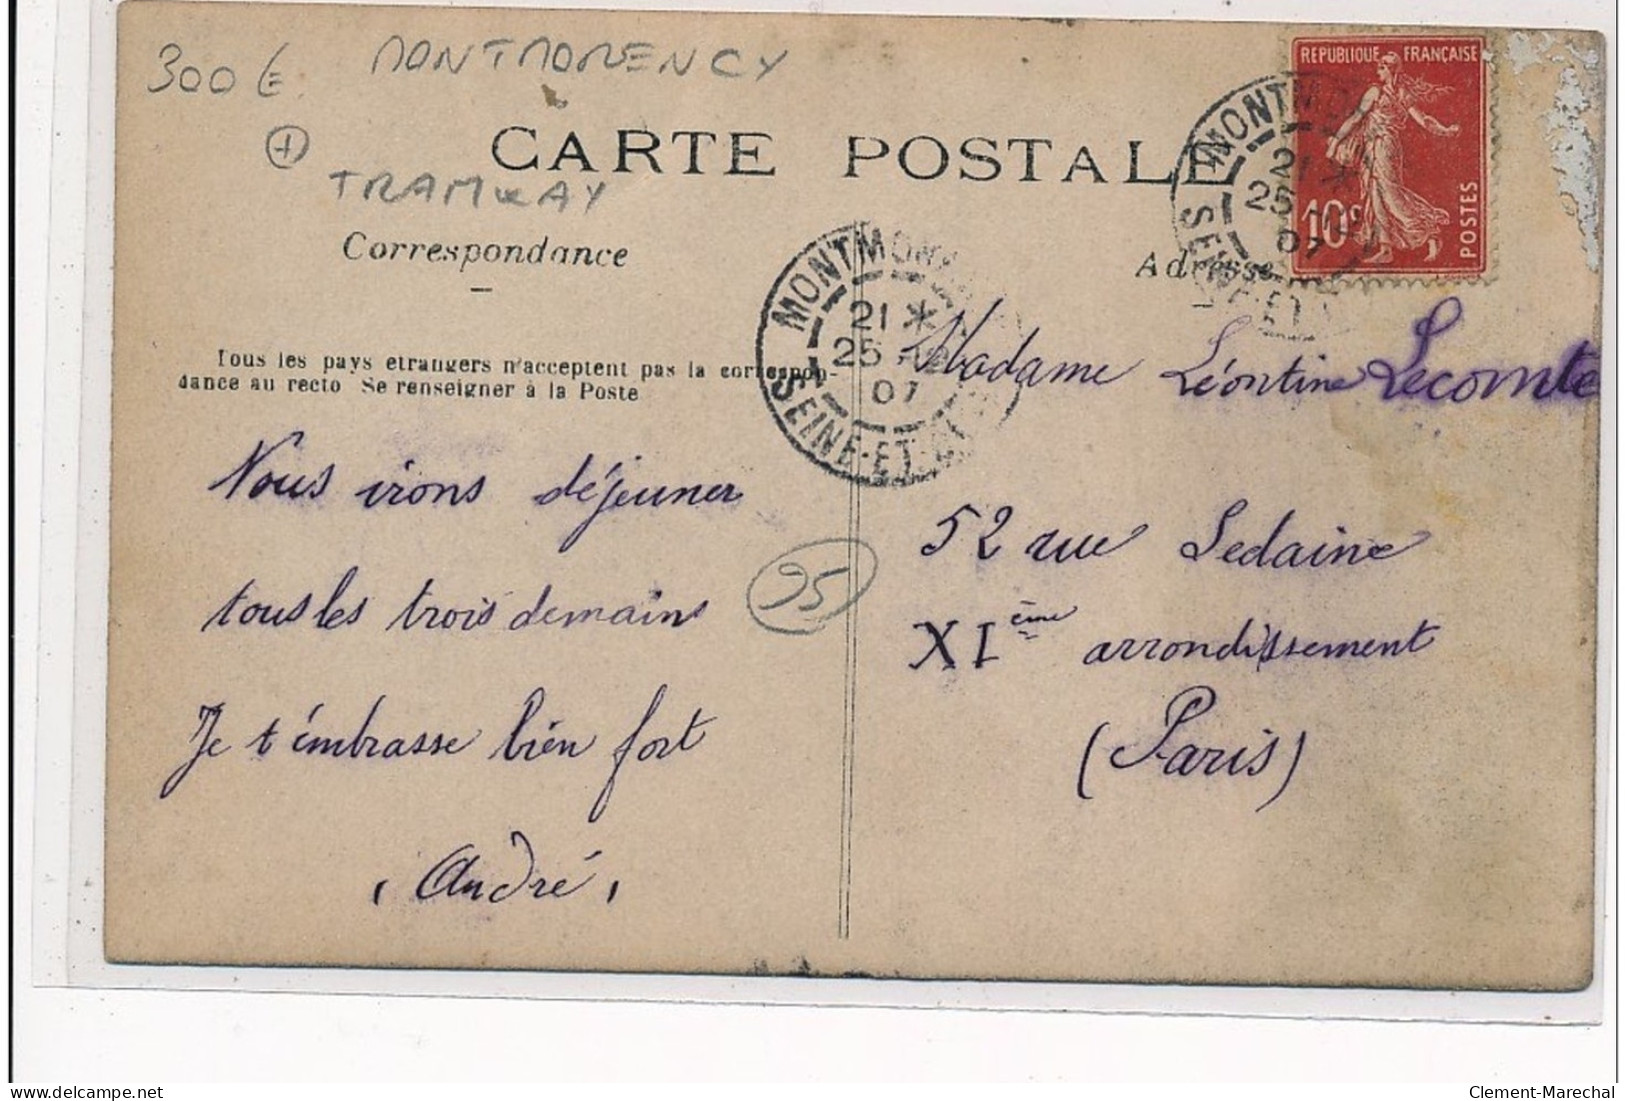 300 €
MONTMORENCY
+
TRAMWAY
CARTE POSTALE
REPUBLIQUE FRANÇAISE
10c
POSTES
MONTMOR
21 *
25
07
SEINE-ET
Correspondance
Adresse
Tous les pays etrangers n'acceptent pas la correspon-
dance au recto Se renseigner à la Poste
MONTMOR
21 *
25 -12
07
SEINE-ET
Madame Léontine Lecomte
52 rue Sedaine
XIème arrondissement
(Paris)
Nous irons déjeuner
tous les trois demain
Je t'émbrasse bien fort
André
95
Clement-Marechal